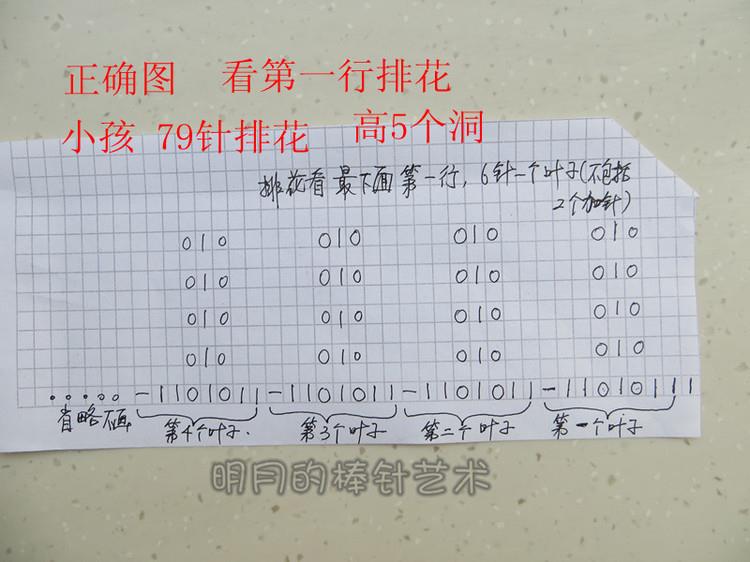 正确图 看第一行排花
小孩 79针排花 高5个洞
排花看最下面第一行,6针一个叶子(不包括
2个加针)
010 010 010 010
010 010 010 010
010 010 010 010
010 010 010 010
.....-1101011-1101011-1101011-11010111
省略不画 第4个叶子. 第3个叶子 第二个叶子 第一个叶子
明月的棒针艺术